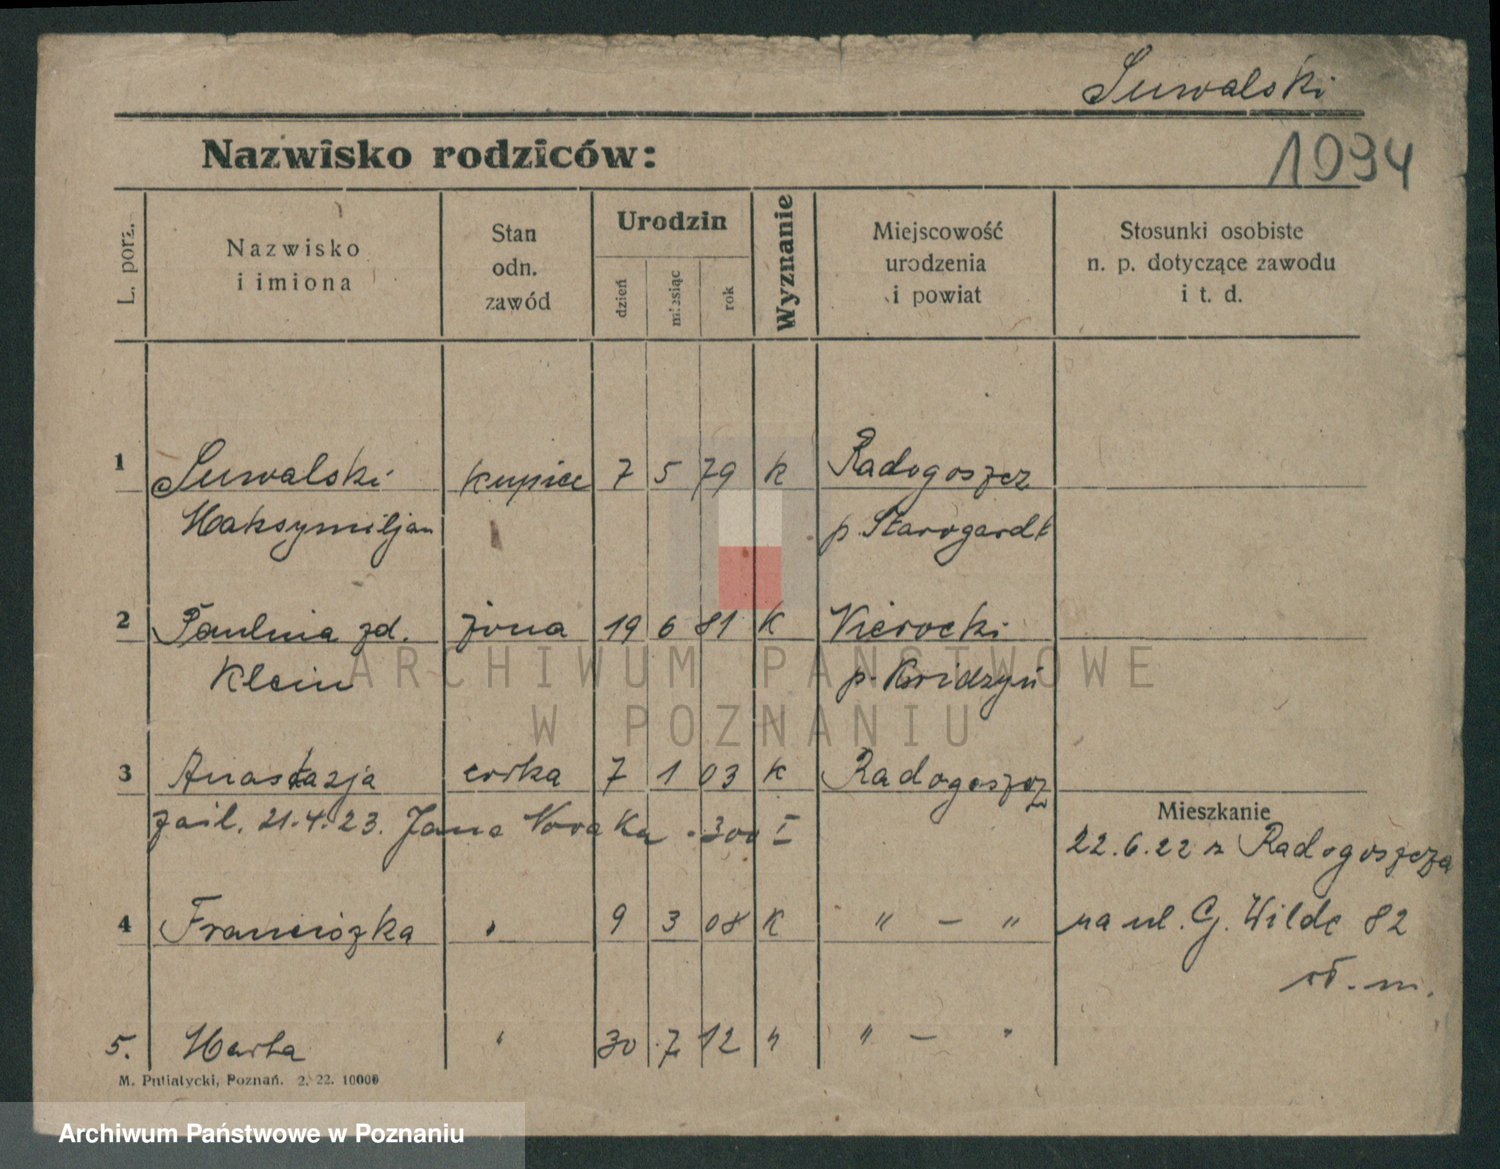 Suwalski
1094
Nazwisko rodziców:
L. porz. Nazwisko i imiona Stan odn. zawód Urodzin dzień miesiąc rok Wyznanie Miejscowość urodzenia i powiat Stosunki osobiste n. p. dotyczące zawodu i t. d.
1 Suwalski kupiec 7 5 79 k Radogoszcz
Maksymiljan p. Starogard
2 Paulina zd. żona 19 6 81 k
Klein p. Kwidzyń
3 Anastazja córka 7 1 03 k Radogoszcz
zaśl. 21.4.23. Jana Nowaka 300 I
Mieszkanie
22.6.22 z Radogoszcza
4 Franciszka " 9 3 08 K " — " na ul. G. Wilde 82
wł. m.
5. Marta " 30 7 12 " " — "
M. Putiatycki, Poznań. 2. 22. 10000
ARCHIWUM PAŃSTWOWE
W POZNANIU
Archiwum Państwowe w Poznaniu